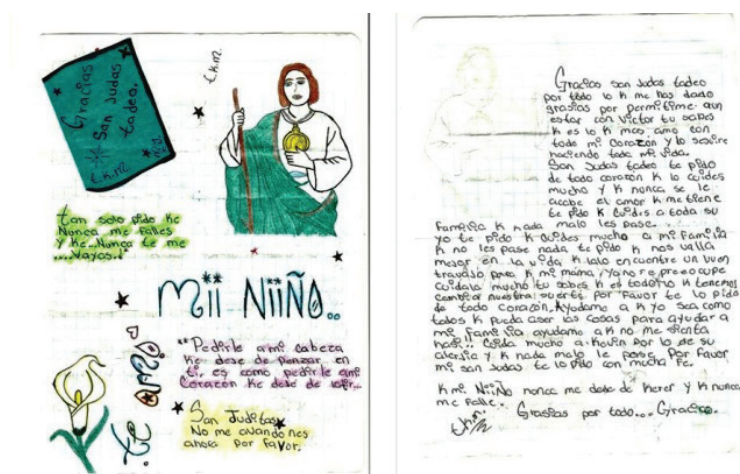 Gracias
San Judas
tadeo.
t.k.m.
t.k.m.
tan solo pido Ke
Nunca me falles
y Ke Nunca te me
....Vayas..!
Mii NiiÑO..
"Pedirle ami cabeza
Ke dese de penzar en
ti, es como pedirle ami
Corazón Ke dese de latir...
San Juditas
No me avandones
ahora por favor.
Gracias san Judas tadeo
por todo lo k me has dado
grasias por permitime aun
estar con Victor tu sabes
K es lo K mas amo con
todo mi Corazón y lo seguire
haciendo toda mi vida.
San Judas tadeo te pido
de todo corazón K lo cuides
mucho y K nunca se le
acabe el amor K me tiene
te pido K cuides a toda su
Familia K nada malo les pase....
yo te pido K cuides mucho a mi familia
K no les pase nada te pido K nos valla
mejor en la vida K lalo encuentre un vuen
travajo para K mi mama ya no se preocupe
cuidalo mucho tu sabes K es todo no K tenemos
cambiar nuestra suerte por favor te lo pido
de todo corazón. Ayudamo a K yo sea como
todos K pueda aser las cosas para ayudar a
mi familia ayudamo a K no me sienta
mal!! Cuida mucho a Kevin por lo de su
alersia y K nada malo le pase. Por favor
mi san Judas te lo pido con mucha Fe.
K mi NiiÑo nunca me dese de Kerer y K nunca
me falle.
Grasias por todo... Gracias.